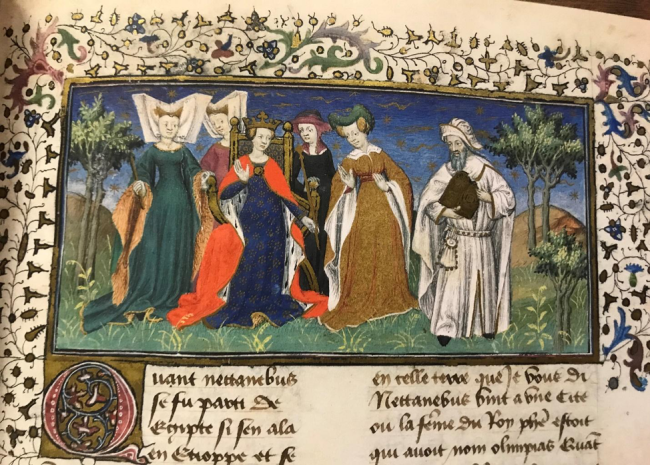 Quant nettanebus
se fu parti de
Egypte si sen ala
en Etioppe et se
en telle terre que Je vous di
Nettanebus vint a vne Cite
ou la feme du Roy phe estoit
qui auoit nom olimpias Quāt